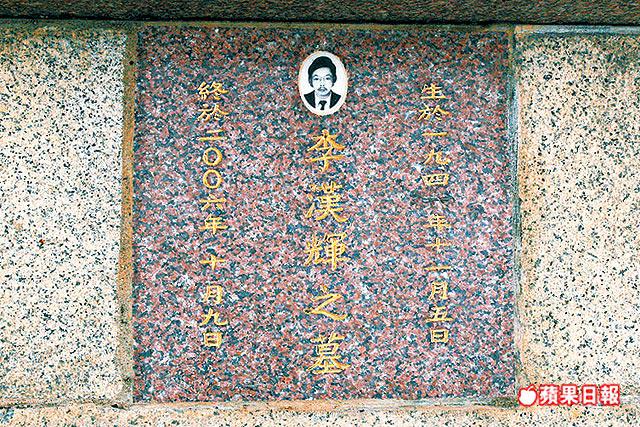 生於一九四 年十一月五日
李漢輝之墓
終於二〇〇六年 十月九日
蘋果日報